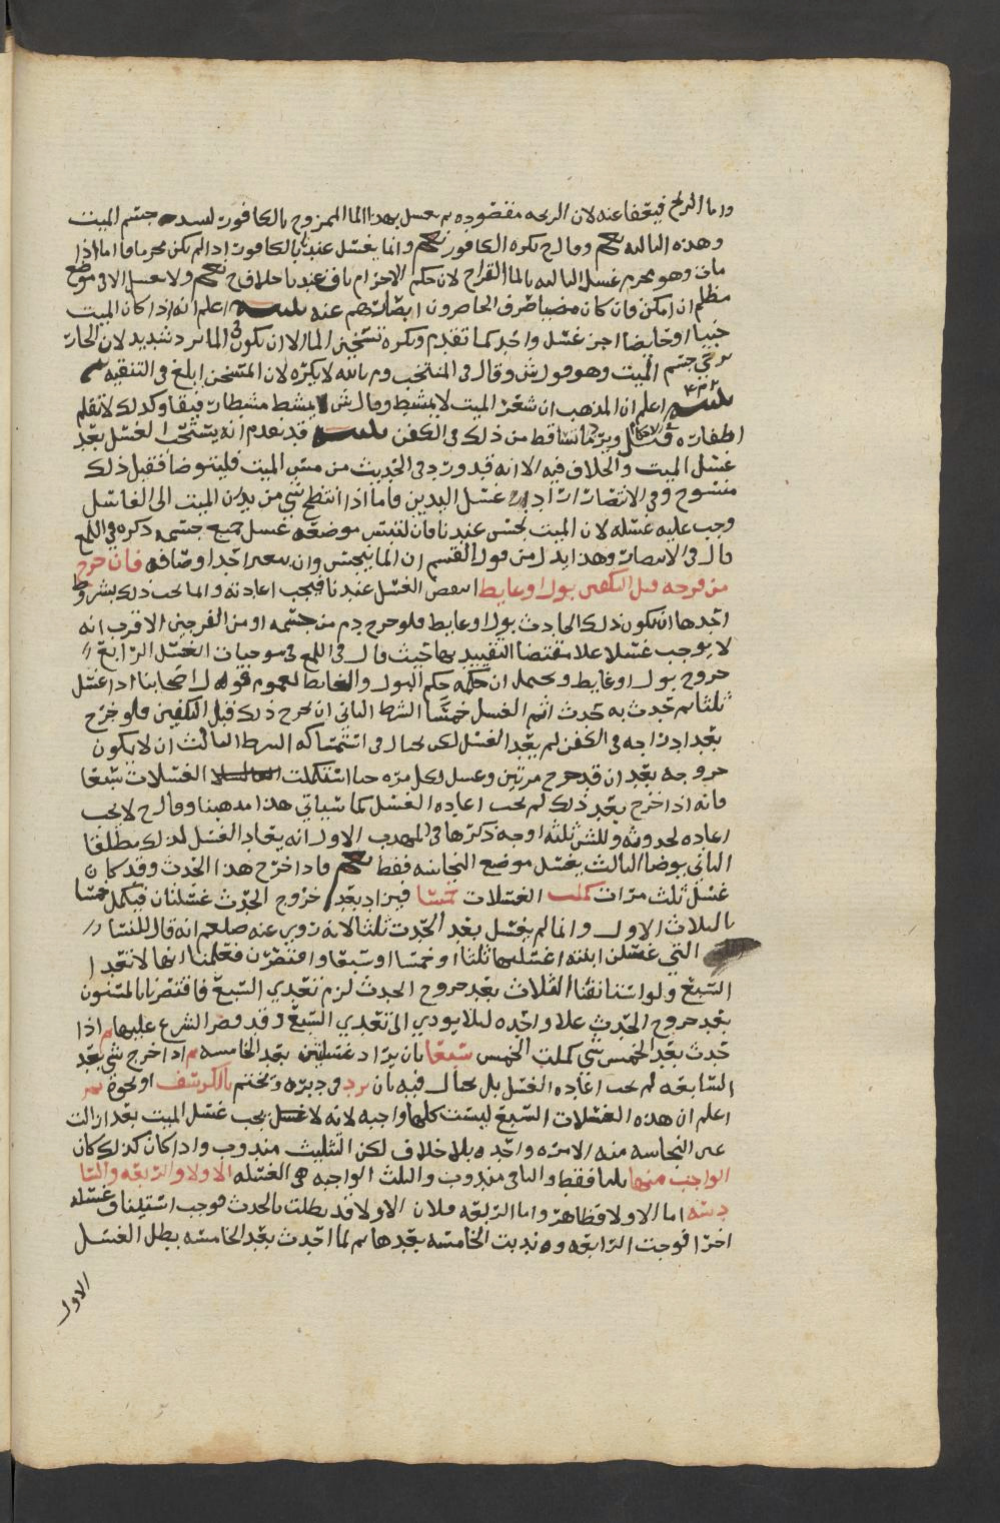 واما الريح فيعفا عنه لان الريحه مقصوده ثم يغسل بهذا الما الممزوج بالكافور لسد جسم الميت
وهذه الثالثه وقال ح يكره الكافور وانما يغسل عندنا بالكافور اذا لم يكن محرما فاما اذا
مات وهو محرم غسل الثالثه بالما القراح لان حكم الاحرام باق عندنا خلاف ح ولا يغسل الا في موضع
مظلم ان امكن فان كان مضيا صرف الحاضرون ابصارهم عنه تنبيه اعلم انه اذا كان الميت
جنبا او حايضا اجز غسل واحد كما تقدم ويكره تسخين الما الا ان يكون في الما برد شديد لان الحار
يرخي جسم الميت وهو قول ش وقال في المنتخب وم بالله لا يكره لان المسخن ابلغ في التنقيه
تنبيه اعلم ان المذهب ان شعر الميت لا يمشط وقال ش يمشط مشطا رفيقا وكذلك لا تقلم
اظفاره ويرد ما تساقط من ذلك في الكفن تنبيه قد تقدم انه يستحب الغسل بعد
غسل الميت والخلاف فيه الا انه قد ورد في الحديث من مس الميت فليتوضا فقيل ذلك
منسوخ وفي الانتصار اراد به غسل اليدين فاما اذا انتضح شي من بدن الميت الى الغاسل
وجب عليه غسله لان الميت نجس عندنا فان التبس موضعه غسل جميع جسمه ذكره في اللمع
قال في الانتصار وهذا يدل من قول القسم ان الما ينجس وان لم يتغير احد اوصافه فان خرج
من فرجه قبل التكفين بول او غايط انتقض الغسل عندنا فيجب اعادته وانما يجب ذلك بشروط
احدها ان يكون ذلك الحادث بولا او غايط فلو خرج دم من جسمه او من الفرجين الاقرب انه
لا يوجب غسلا علا مقتضا التقييد بهما حيث قال في اللمع في موجبات الغسل الرابع
خروج بول او غايط ويحتمل ان حكمه حكم البول والغايط لعموم قول اصحابنا اذا غسل
ثلثا ثم حدث به حدث اتم الغسل خمسا الشرط الثاني ان يخرج ذلك قبل التكفين فلو خرج
بعد ادراجه في الكفن لم يعد الغسل لكن يحال في استمساكه الشرط الثالث ان لا يكون
خروجه بعد ان قد خرج مرتين وغسل لكل مره حتا استكملت الغسلات سبعا
فانه اذا خرج بعد ذلك لم يجب اعاده الغسل كما سياتي هذا مذهبنا وقال ح لا يجب
اعاده لحدوثه وللش ثلثه اوجه ذكرها في المهذب الاول انه يعاد الغسل لذلك مطلقا
الثاني يوضا الثالث يغسل موضع النجاسه فقط فاذا خرج هذا الحدث وقد كان
غسل ثلث مرات كملت الغسلات خمسا فيزاد بعد خروج الحدث غسلتان فيكمل خمسا
بالثلاث الاول وانما لم يغسل بعد الحدث ثلثا لانه روي عنه صلعم انه قال للنسا
التي غسلن ابنته اغسلنها ثلثا او خمسا او سبعا واقتصرن فعلمنا انها لا تعدا
السبع ولو استانفنا الثلاث بعد خروج الحدث لزم تعدي السبع فاقتصرنا بالمسنون
بعد خروج الحدث علا واحده ليلا يودي الى تعدي السبع وقد قصر الشرع عليها ثم اذا
حدث بعد الخمس شي كملت الخمس سبعا بان يزاد غسلتين بعد الخامسه ثم اذا خرج شي بعد
السابعه لم يجب اعاده الغسل بل يحال فيه بان يرد في دبره ويختم بالكرسف او نحوه
اعلم ان هذه الغسلات السبع ليست كلها واجبه لانه لا يجب غسل الميت بعد ازالت
عين النجاسه منه الا مره واحده بلا خلاف لكن التثليث مندوب واذا كان كذلك كان
الواجب منها ثلثا فقط والباقي مندوب والثلث الواجبه هي الغسله الاولا والرابعه والسا
دسه اما الاولا فظاهر واما الرابعه فلان الاولا قد بطلت بالحدث فوجب استيناف غسله
اخرا فوجبت الرابعه وندبت الخامسه بعدها ثم لما احدث بعد الخامسه بطل الغسل
الاول